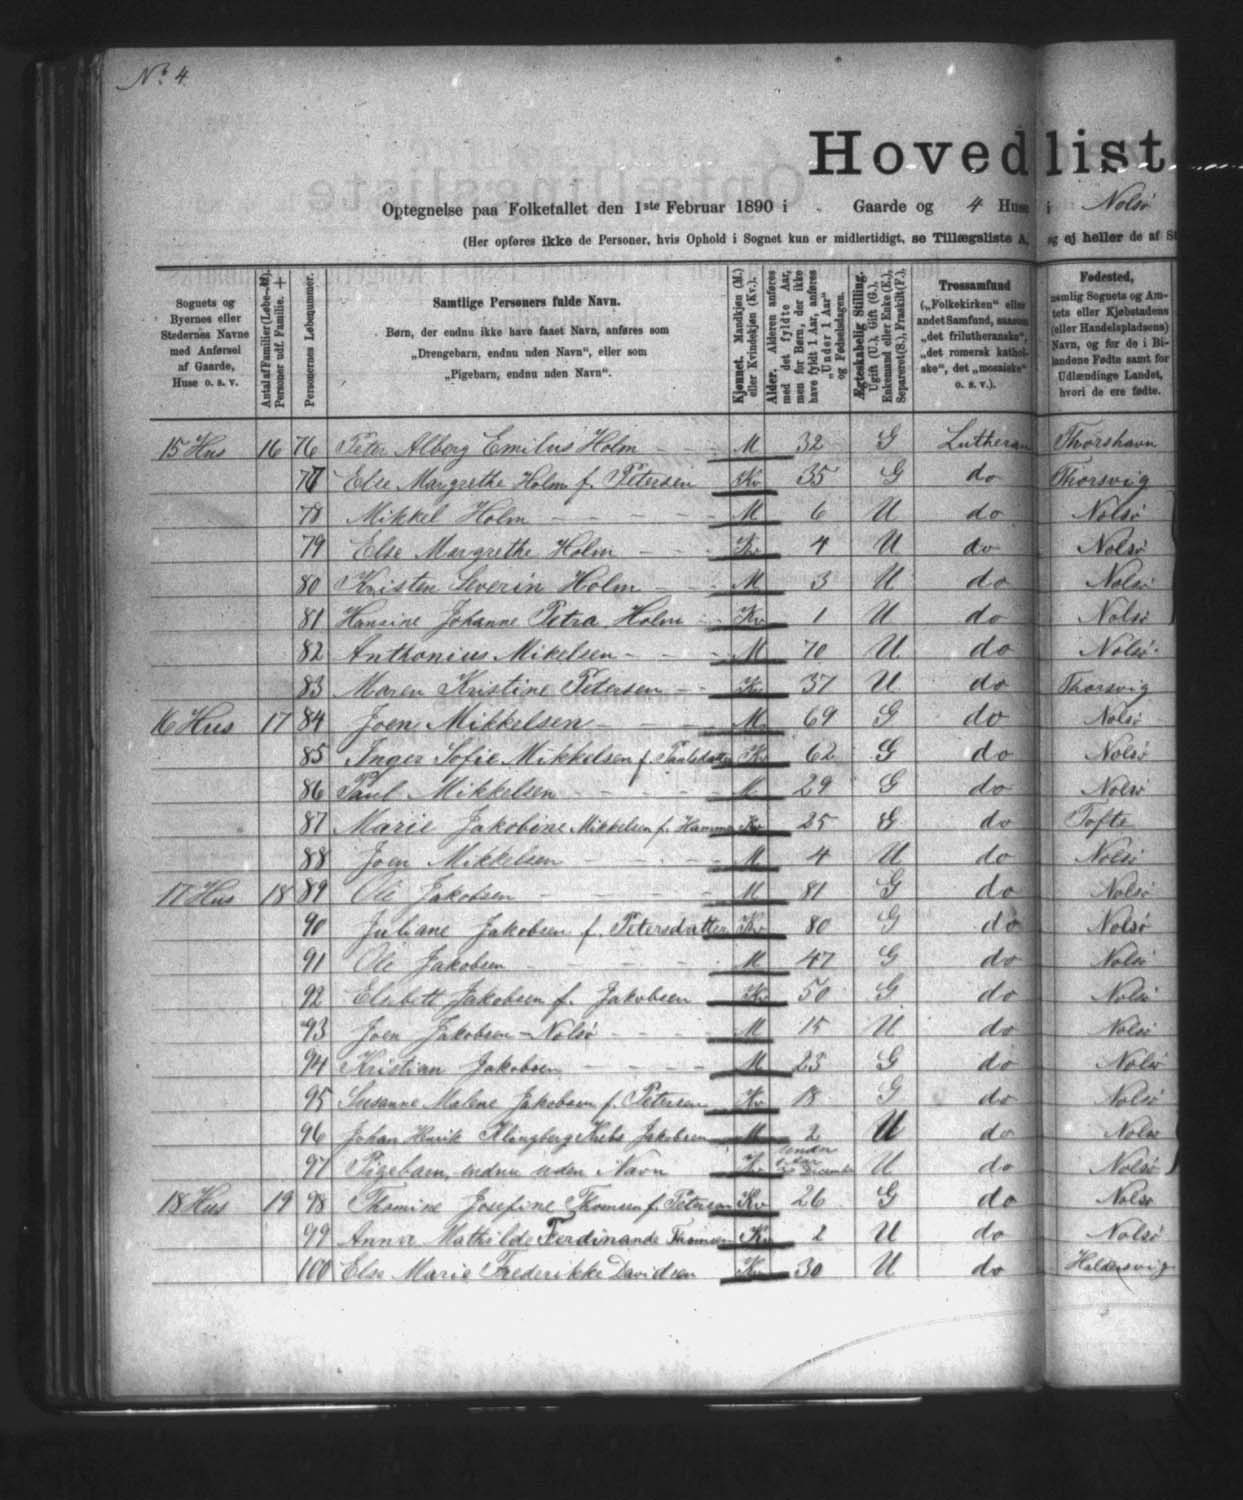 No. 4.
Hovedlist
Optegnelse paa Folketallet den 1ste Februar 1890 i - Gaarde og 4 Huse i Nolsö
(Her opføres ikke de Personer, hvis Ophold i Sognet kun er midlertidigt, se Tillægsliste A, og ej heller de af
Sognets og Byernes eller Stedernes Navne med Anførsel af Gaarde, Huse o. s. v.
Antal af Familier (Løbe-№). Personer udf. Familie. +
Personernes Løbenummer.
Samtlige Personers fulde Navn.
Børn, der endnu ikke have faaet Navn, anføres som
„Drengebarn, endnu uden Navn", eller som
„Pigebarn, endnu uden Navn".
Kjønnet. Mandkjøn (M.) eller Kvindekjøn (Kv.).
Alder. Alderen anføres med det fyldte Aar, men for Børn, der ikke have fyldt 1 Aar, anføres „Under 1 Aar" og Fødselsdagen.
Ægteskabelig Stilling. Ugift (U.), Gift (G.), Enkemand eller Enke (E.), Separeret (S.), Fraskilt (F.).
Trossamfund („Folkekirken" eller andet Samfund, saasom „det frilutheranske", „det romersk katholske", det „mosaiske" o. s. v.).
Fødested, nemlig Sognets og Amtets eller Kjøbstadens (eller Handelspladsens) Navn, og for de i Bilandene Fødte samt for Udlændinge Landet, hvori de ere fødte.
15 Hus 16 76 Peter Alberg Emilius Holm - - M 32 G Lutheran Thorshavn
77 Else Margrethe Holm f. Petersen Kv 35 G do Thorsvig
78 Mikkel Holm - - - - M 6 U do Nolsö
79 Else Margrethe Holm - - Kv 4 U do Nolsö
80 Kristen Severin Holm - - M 3 U do Nolsö
81 Hansine Johanne Petra Holm - Kv 1 U do Nolsö
82 Anthonius Mikelsen - - - M 70 U do Nolsö
83 Maren Kristine Petersen - - Kv 37 U do Thorsvig
16 Hus 17 84 Joen Mikkelsen - - - - M 69 G do Nolsö
85 Inger Sofie Mikkelsen f. Paulsdatter Kv 62 G do Nolsö
86 Paul Mikkelsen - - - - M 29 G do Nolsö
87 Marie Jakobine Mikkelsen f. Hammer Kv 25 G do Tofte
88 Joen Mikkelsen - - - - M 4 U do Nolsö
17 Hus 18 89 Ole Jakobsen - - - - M 81 G do Nolsö
90 Juliane Jakobsen f. Petersdatter Kv 80 G do Nolsö
91 Ole Jakobsen - - - - M 47 G do Nolsö
92 Elsebett Jakobsen f. Jakobsen Kv 50 G do Nolsö
93 Joen Jakobsen - Nolsö - - - M 15 U do Nolsö
94 Kristian Jakobsen - - - - M 23 G do Nolsö
95 Susanne Malene Jakobsen f. Petersen Kv 18 G do Nolsö
96 Johan Henrik Klingberg Krebs Jakobsen M 2 U do Nolsö
97 Pigebarn, endnu uden Navn Kv Under 1 Aar December U do Nolsö
18 Hus 19 98 Thomine Josefine Thomsen f. Petersen Kv 26 G do Nolsö
99 Anna Mathilde Ferdinande Thomsen Kv 2 U do Nolsö
100 Else Marie Frederikke Davidsen Kv 30 U do Haldersvig